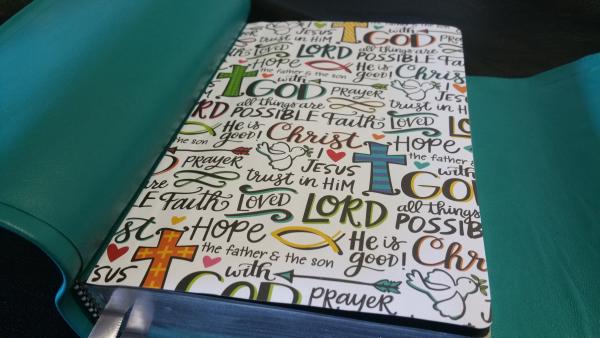 with
JESUS GOD PRAYER
trust in HIM
Loved LORD all things are
POSSIBLE Faith
Hope the father & the son He is good! Christ
with JESUS
GOD PRAYER trust in HIM
LORD all things are
POSSIBLE Faith Loved
He is good! Christ Hope
the father &
JESUS with
PRAYER trust in HIM GOD
Faith Loved LORD all things are
POSSIBLE
Hope the father & the son He is good! Christ
with
JESUS GOD PRAYER